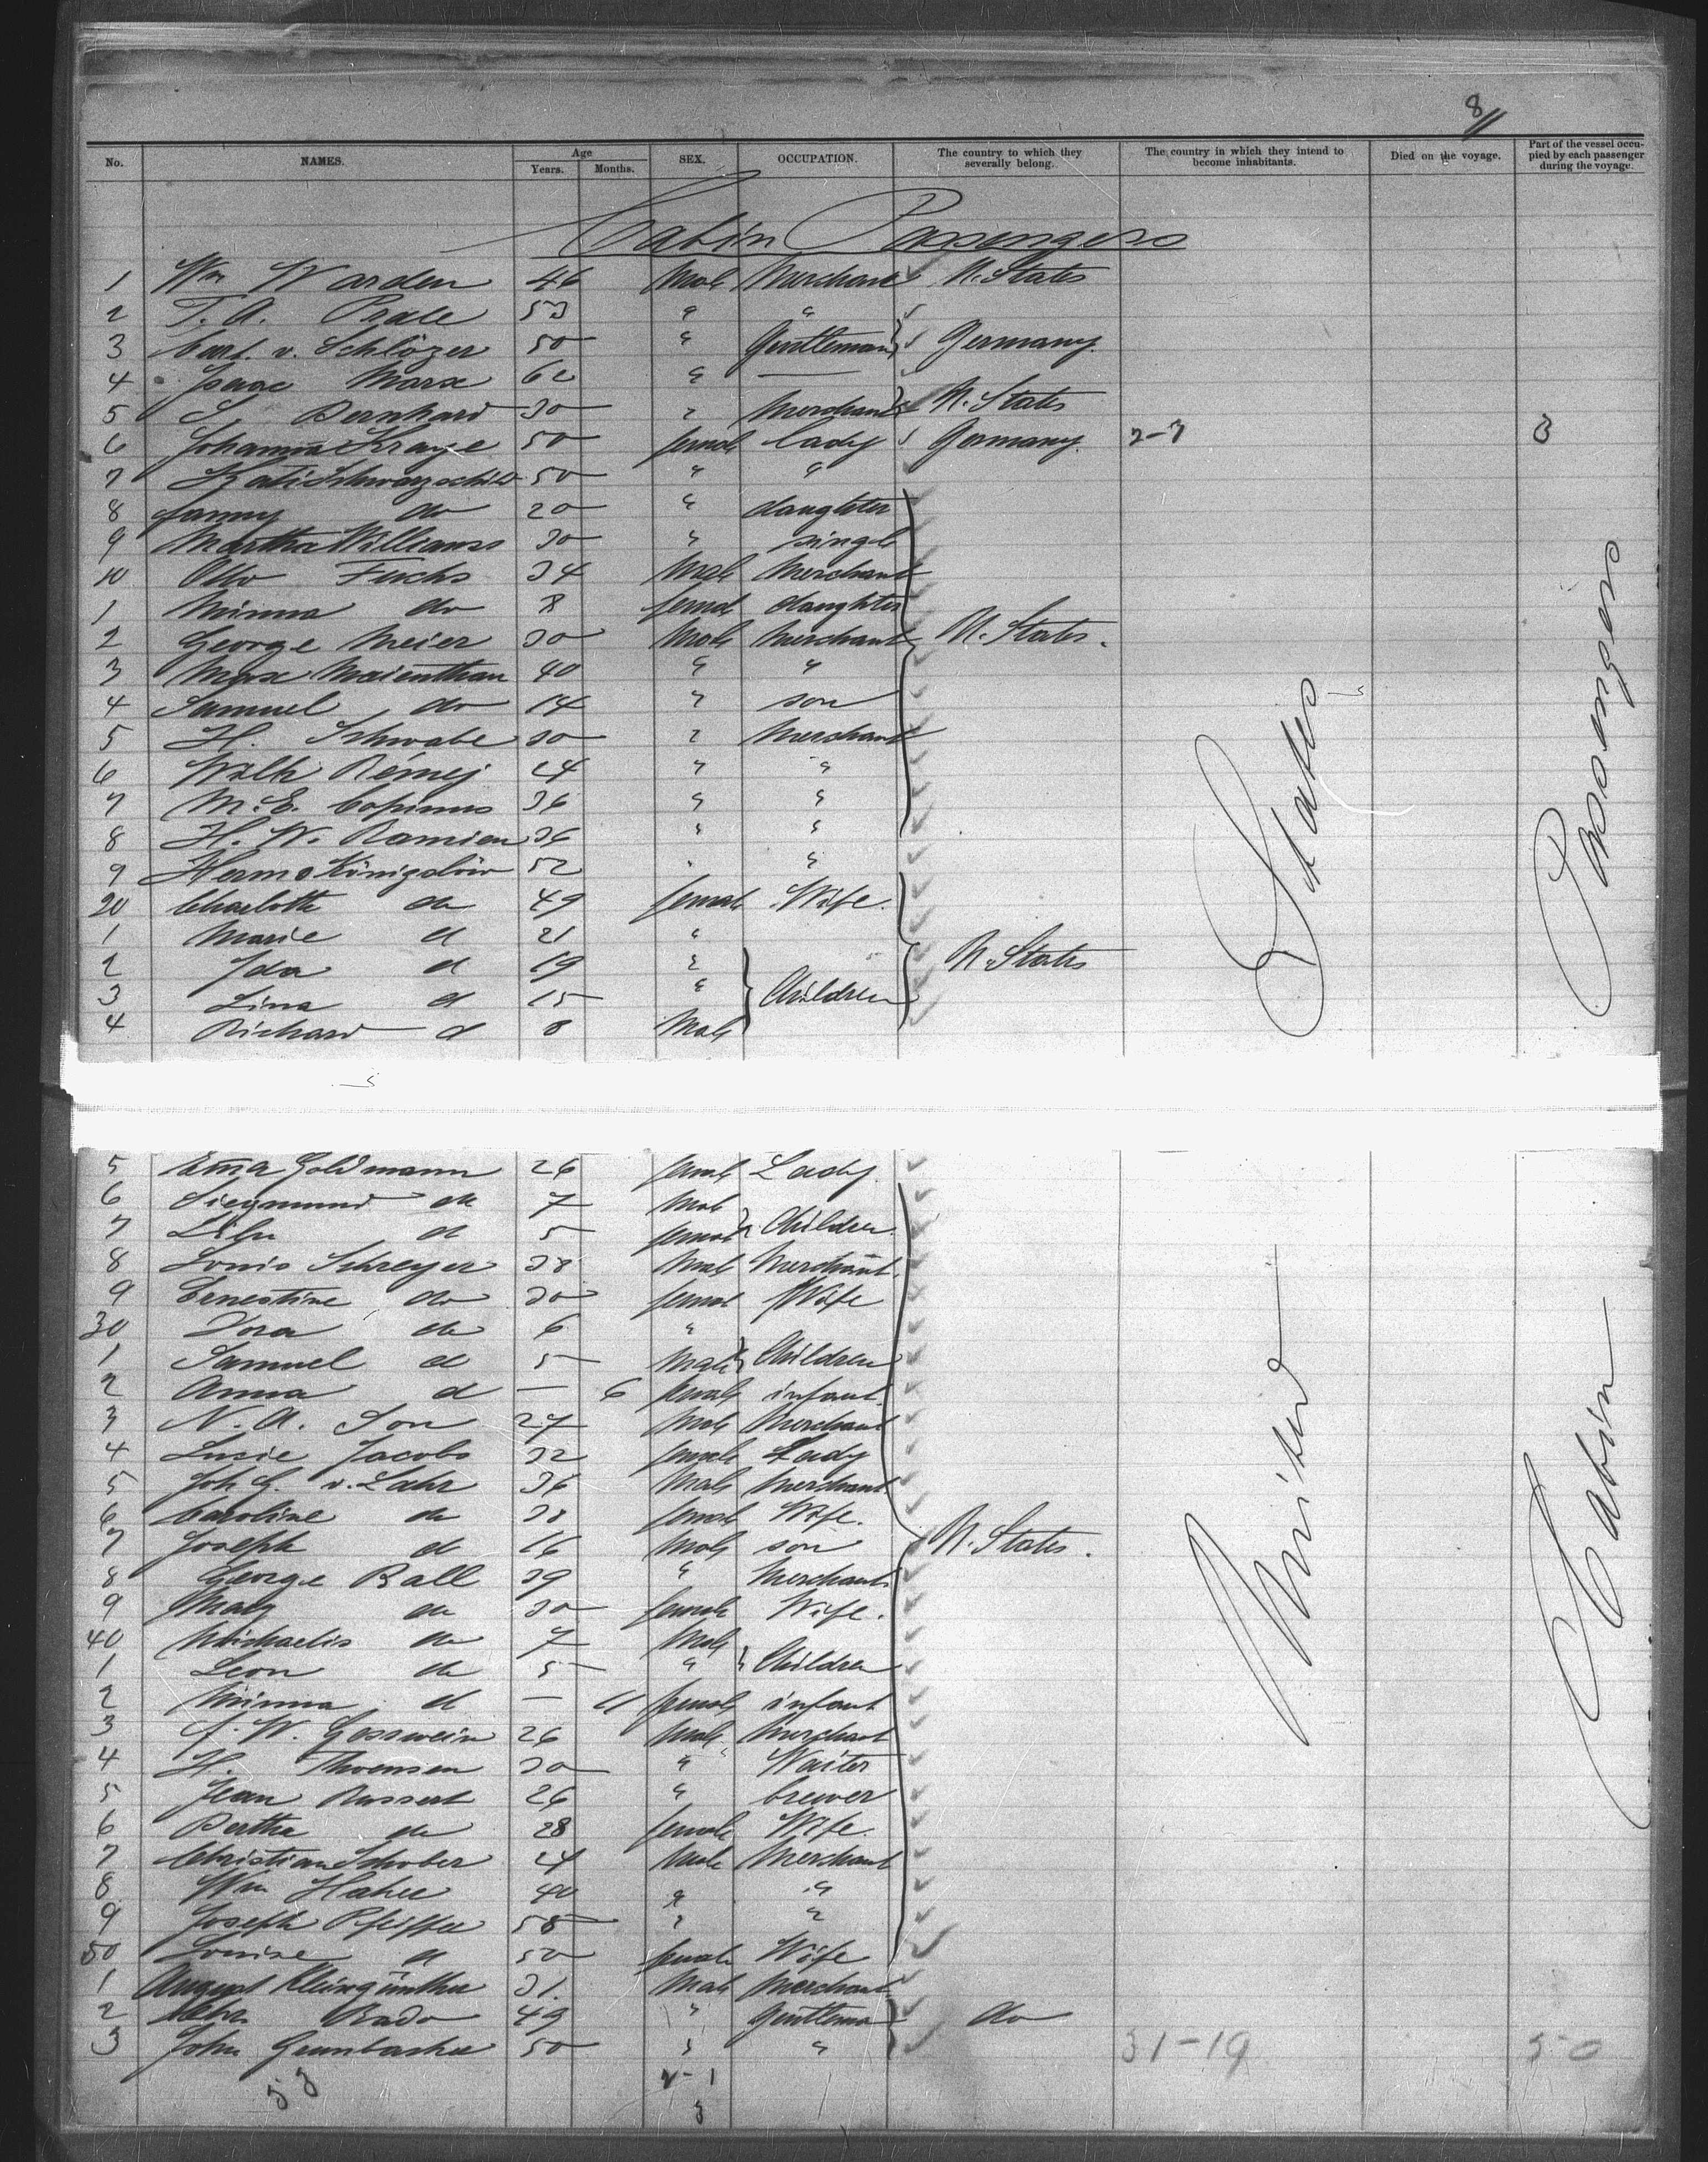 8//
No. NAMES. Age Years. Months. SEX. OCCUPATION. The country to which they severally belong. The country in which they intend to become inhabitants. Died on the voyage. Part of the vessel occupied by each passenger during the voyage.
Cabin Passengers
1 Wm Warden 46 Male Merchant U. States
2 T. A. 53 " "
3 Carl v. Schlözer 50 " Gentleman Germany.
4 Isaac Marx 62 " —
5 S. Bernhard 30 " Merchant U. States
6 Johanna Krause 50 female Lady Germany. 2-1 3
7 Kati Schwarzschild 50 " "
8 Fanny do 20 " daughter
9 Martha Williams 30 " single
10 Otto Fuchs 34 Male Merchant
1 Minna do 8 female daughter
2 George Meier 30 Male Merchant U. States.
3 Max Maienthau 40 " "
4 Samuel do 14 " son
5 H. Schwabe 30 " Merchant
6 Wilh 24 " "
7 M. E. 36 " "
8 H. W. Ramien 36 " "
9 Herm Königslöw 52 " "
20 Charlotte do 49 female Wife.
1 Marie d 21 "
2 Ida d 19 " U. States
3 Lina d 15 " Children
4 Richard d 8 Male
5 Ema Goldmann 26 female Lady.
6 Siegmund do 7 Male
7 d 5 female Children.
8 Louis Schreyer 38 Male Merchant.
9 Ernestine do 30 female Wife
30 Dora do 6 "
1 Samuel d 5 Male Children
2 Anna d — 6 female infant.
3 N. A. Son 27 Male Merchant
4 Lusie Jacobs 32 female Lady
5 Joh G. v. Lahr 36 Male Merchant
6 Caroline do 38 female Wife.
7 Joseph d 16 Male son U. States.
8 George Ball 39 " Merchant
9 Mary do 30 female Wife.
40 Michaelis do 7 Male
1 Leon do 5 " Children
2 Minna d — 11 female infant
3 W. Gosswein 26 Male Merchant
4 H. Thomsen 30 " Waiter
5 Jean 26 " brewer
6 Bertha do 28 female Wife.
7 Christian Schober 24 Male Merchant
8 Wm 40 " "
9 Joseph Pfeiffer 58 " "
50 Louise d 50 female Wife
1 August Kleingünther 31. Male Merchant
2 Rado 49 " Gentleman do
3 John Grumbacher 50 " "
United States
Cabin Passengers
31-19 50
53 2-1
3